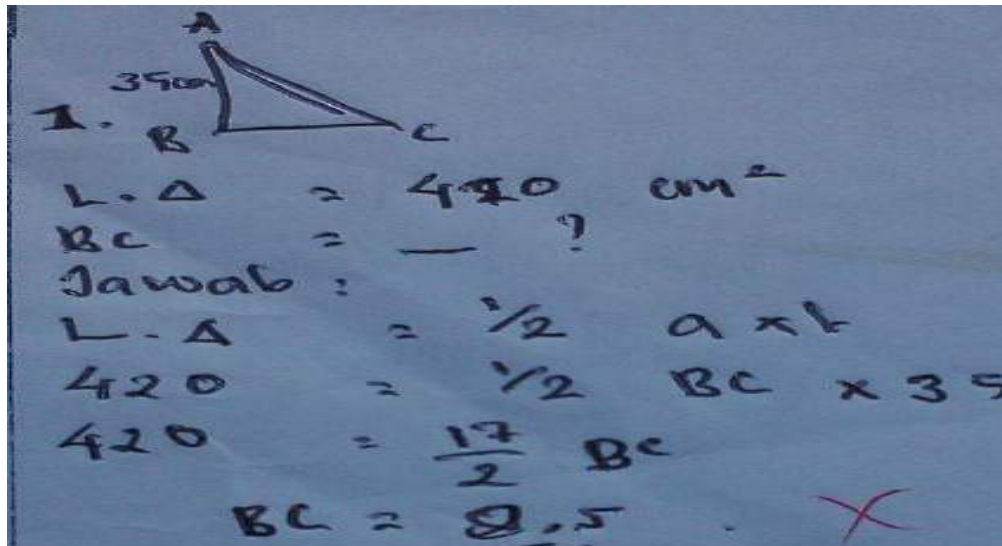 A
35cm
1. B C
L. Δ = 420 cm²
BC = _ ?
Jawab :
L. Δ = 1/2 a x t
420 = 1/2 BC x 35
420 = 17/2 BC
BC = 8.5 . X